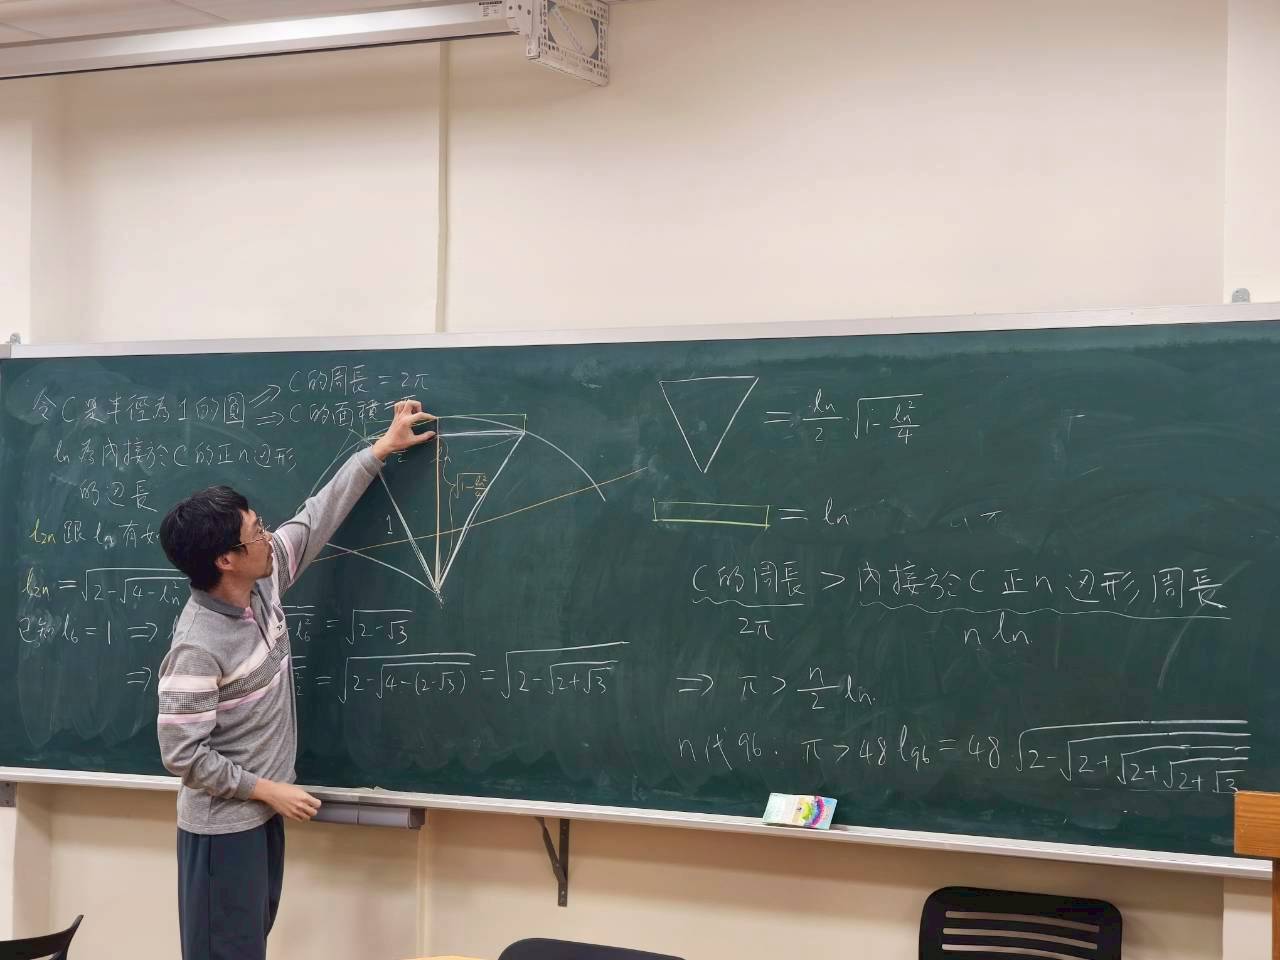 令C是半徑為1的圓 ⇒ C的周長 = 2π
⇒ C的面積 =
ln 為內接於C的正n边形
的边長
l2n 跟 ln 有
l2n = √(2-√(4-ln²
已知 l6 = 1 ⇒ l6² = √(2-√3)
⇒ = √(2-√(4-(2-√3))) = √(2-√(2+√3))
1
√(1-ln²/4)
= ln/2 · √(1-ln²/4)
= ln
C的周長 > 內接於C正n边形周長
2π
n ln
⇒ π > n/2 ln.
n代96 : π > 48 l96 = 48 √(2-√(2+√(2+√(2+√3))))